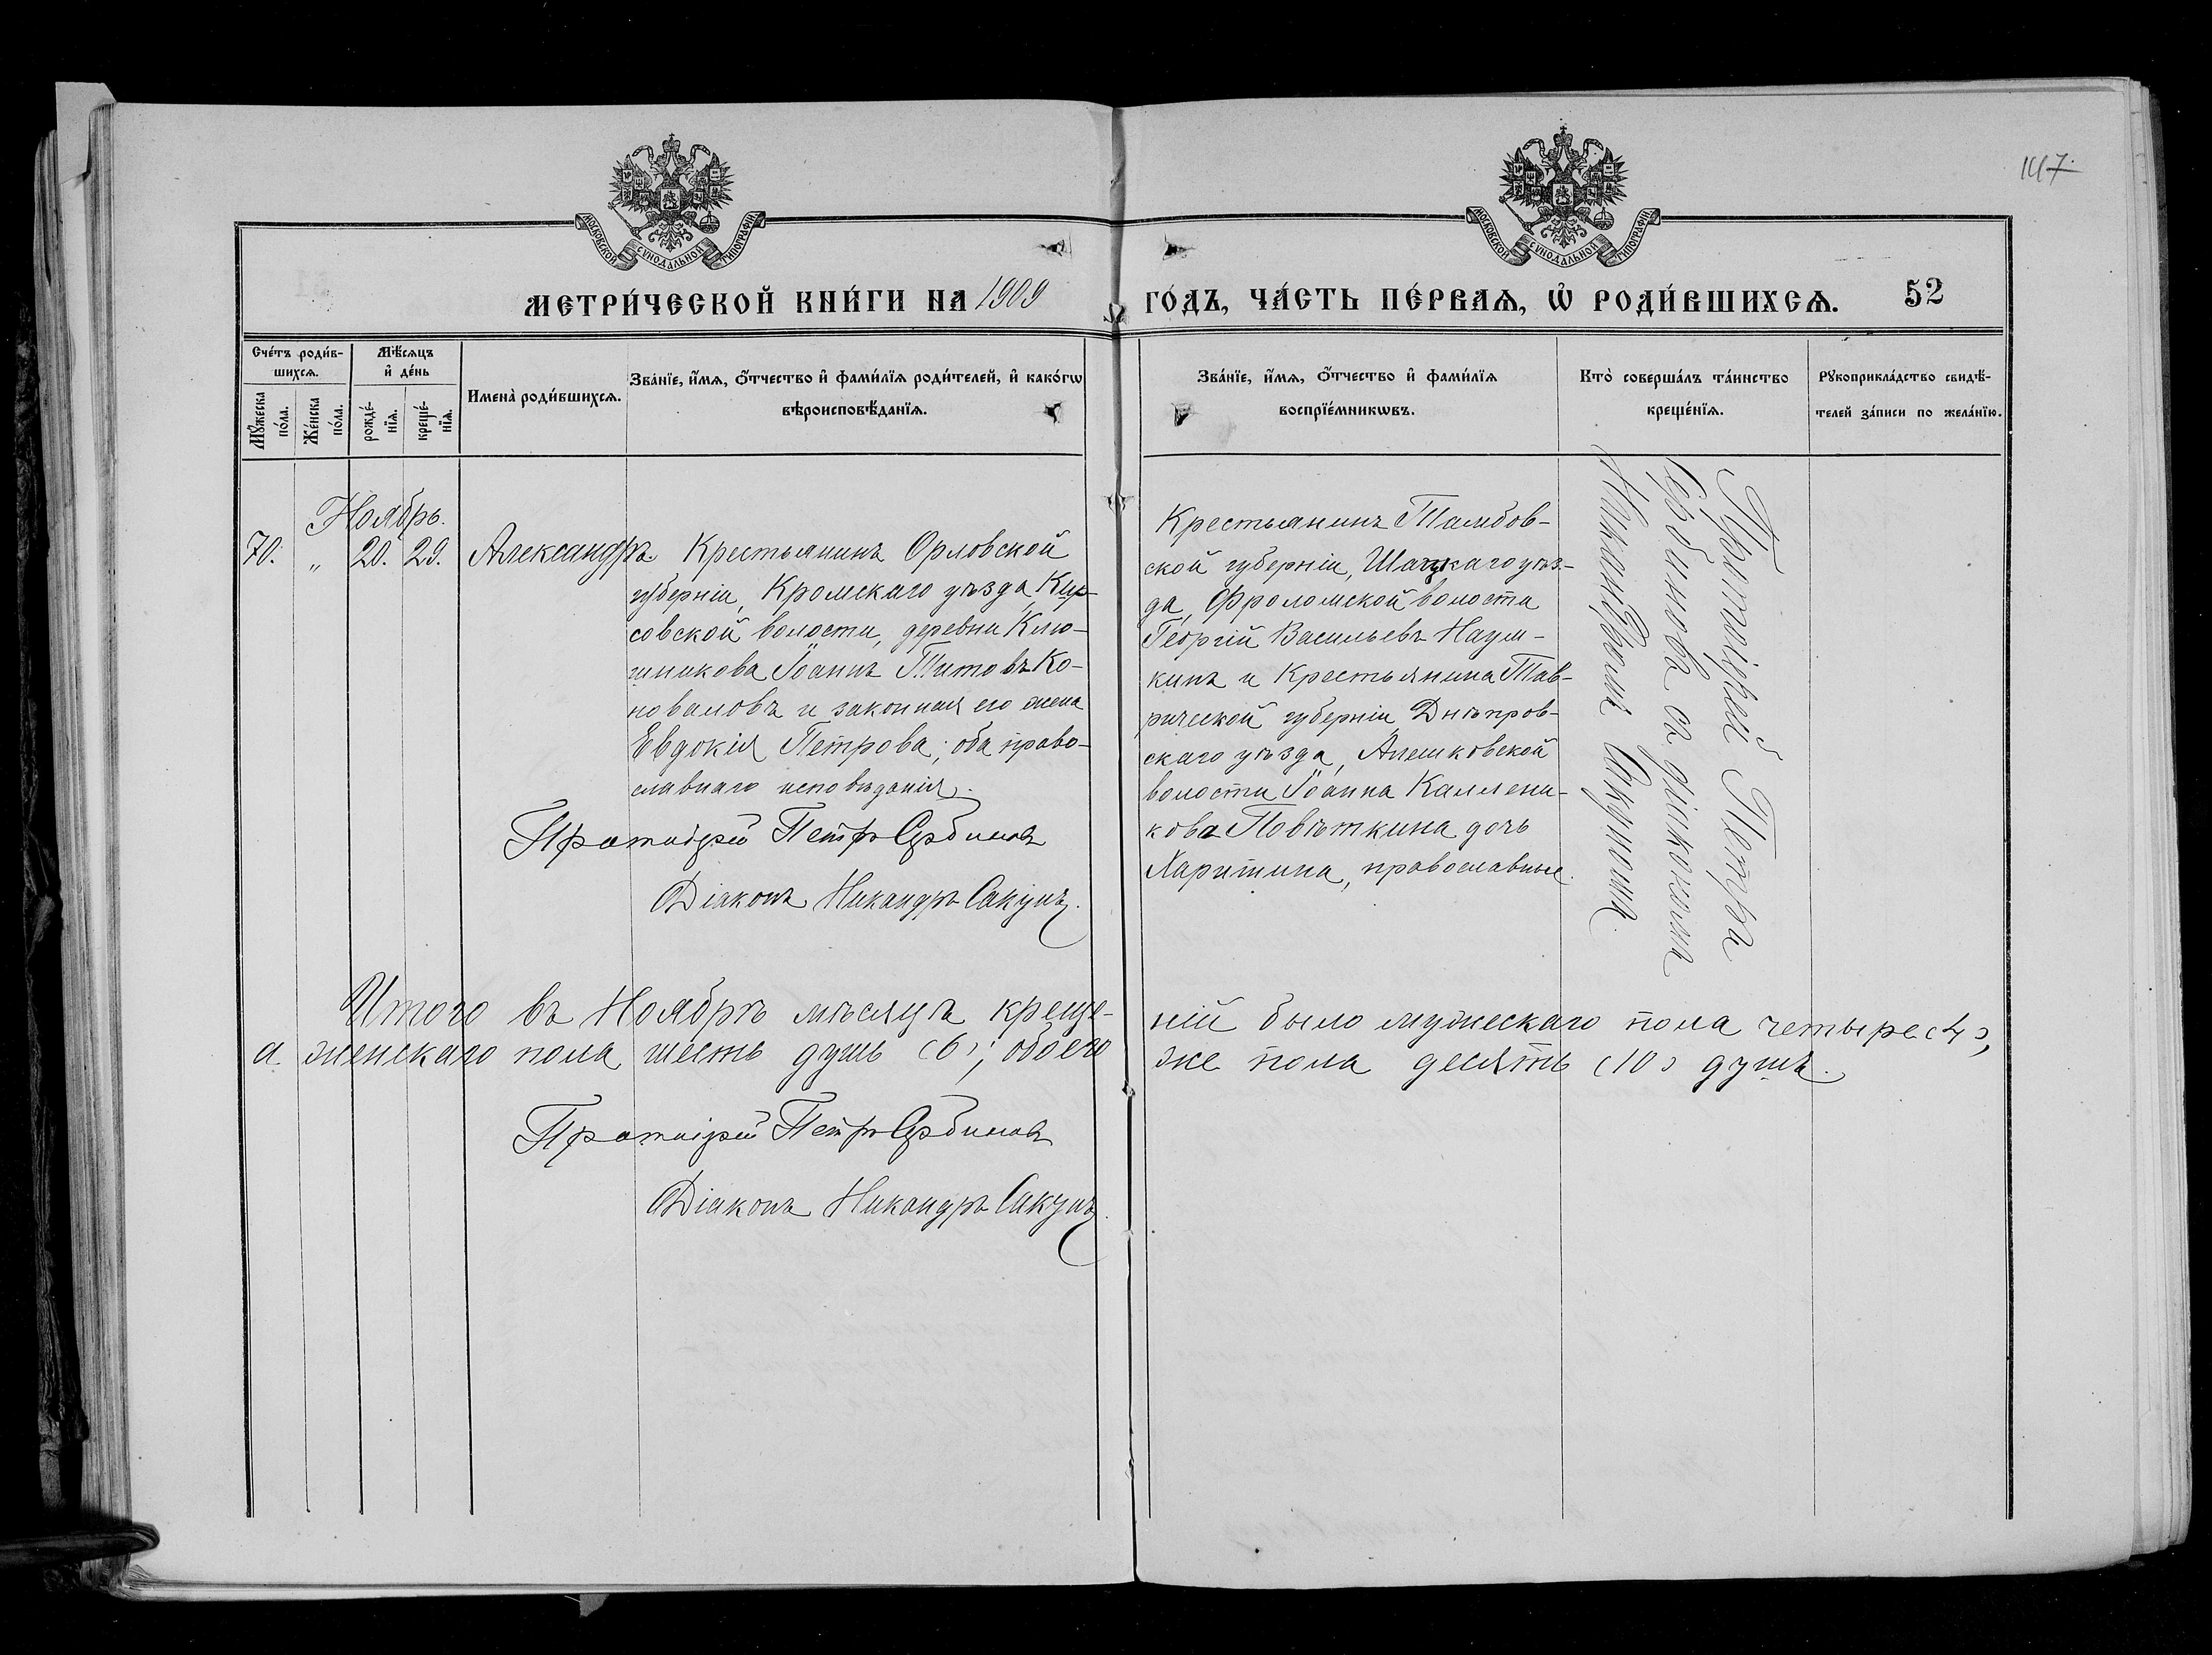 147.
МОСКОВСКОЙ СѴНОДАЛЬНОЙ ТИПОГРАФІИ
МОСКОВСКОЙ СѴНОДАЛЬНОЙ ТИПОГРАФІИ
МЕТРИ́ЧЕСКОЙ КНИ́ГИ НА 1909 ГО́ДЪ, ЧА́СТЬ ПЕ́РВАѦ, Ѡ҆ РОДИ́ВШИХСѦ. 52
Сче́тъ роди́в-
шихсѧ.
Мꙋ́жеска
по́ла.
Же́нска
по́ла.
Мѣ́сѧцъ
и҆ де́нь
рожде́-
нїѧ.
креще́-
нїѧ.
Имена̀ роди́вшихсѧ.
Зва́нїе, и҆́мѧ, ѻ҆́тчество и҆ фами́лїѧ роди́телей, и҆ како́гѡ
вѣроисповѣ́данїѧ.
Зва́нїе, и҆́мѧ, ѻ҆́тчество и҆ фами́лїѧ
воспрїе́мникѡвъ.
Кто̀ соверша́лъ та́инство
креще́нїѧ.
Рꙋкоприкла́дство свидѣ́-
телей за́писи по жела́нїю.
Ноябрь.
70. „ 20. 29. Александръ.
Крестьянинъ Орловской
губерніи, Кромскаго уѣзда, Кир-
совской волости, деревни Клю-
шникова Іоаннъ Титовъ Ко-
новаловъ и законная его жена
Евдокія Петрова; оба право-
славнаго исповѣданія.
Протоіерей Петръ Сербиновъ
Діаконъ Никандръ Сакунъ.
Крестьянинъ Тамбов-
ской губерніи, Шацкаго уѣз-
да, Фроломской волости
Георгій Васильевъ Наум-
кинъ и Крестьянина Тав-
рической губерніи Днѣпров-
скаго уѣзда, Алешковской
волости Іоанна Каллени-
кова Повѣткина дочь
Харитина, православные.
Протоіерей Петръ
Сербиновъ съ діакономъ
Никандромъ Сакуномъ.
Итого въ Ноябрѣ мѣсяцѣ креще-
ній было мужескаго пола четыре (4),
а женскаго пола шесть душъ (6); обоего
же пола десять (10) душъ.
Протоіерей Петръ Сербиновъ
Діаконъ Никандръ Сакунъ.